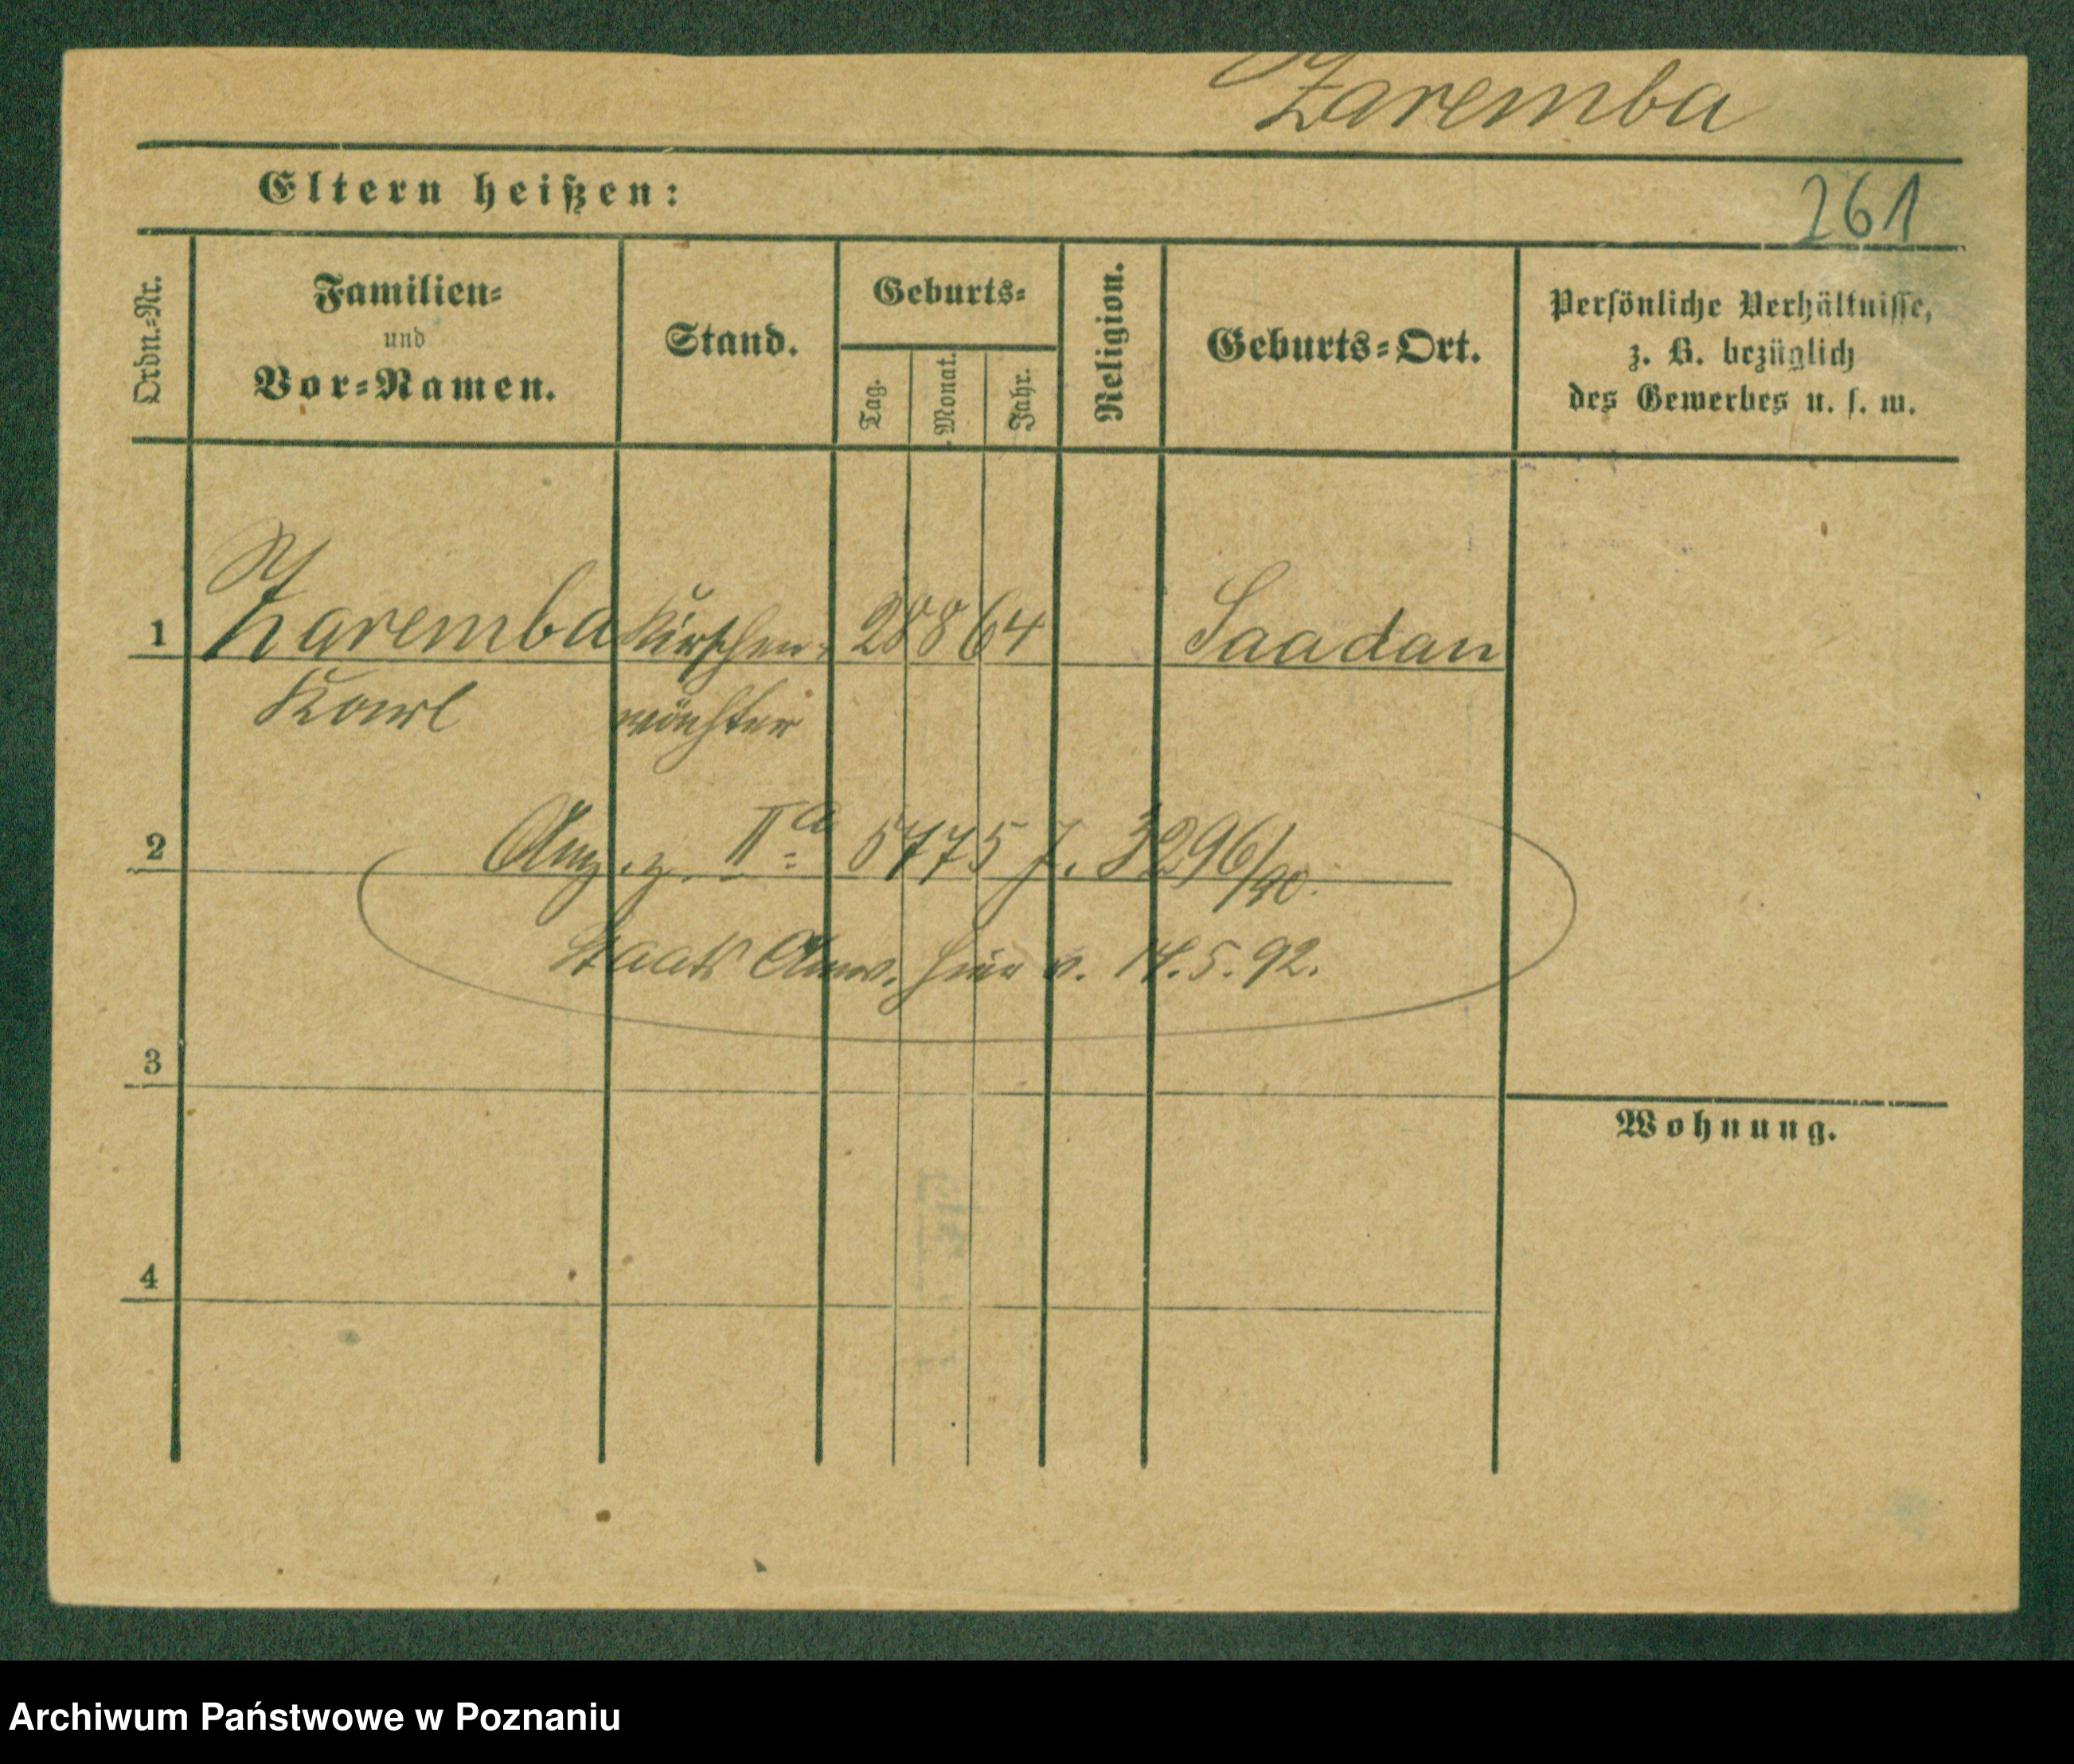 Zaremba
Eltern heißen:
261
Ordn.=Nr.
Familien=
und
Vor=Namen.
Stand.
Geburts=
Tag.
Monat.
Jahr.
Religion.
Geburts=Ort.
Persönliche Verhältnisse,
z. B. bezüglich
des Gewerbes u. s. w.
1 Zaremba Kirschen- 28 8 64 Saadan
Karl wächter
2 Anz. z. IIa 5775 J. 3296/90.
Staats Anw. hier v. 14.5.92.
3
Wohnung.
4
Archiwum Państwowe w Poznaniu